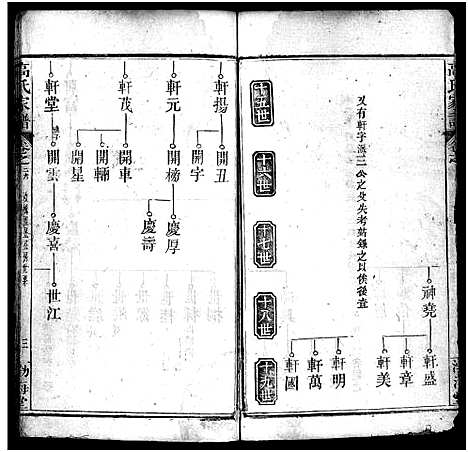 高氏家譜
神堯
軒盛
軒章
軒美
又有軒字派三公之父失考姑錄之以俟後查
軒明
軒萬
軒國
十五世
十六世
十七世
十八世
十九世
軒揚
開丑
開字
軒元
開榜
慶厚
慶壽
軒茂
開車
開輛
開星
軒堂
開雲
慶喜
世江
高氏家譜
三
渤海堂